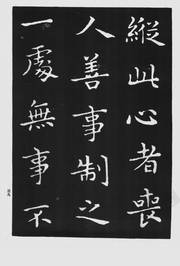 縱此心者喪
人善事制之
一處無事不